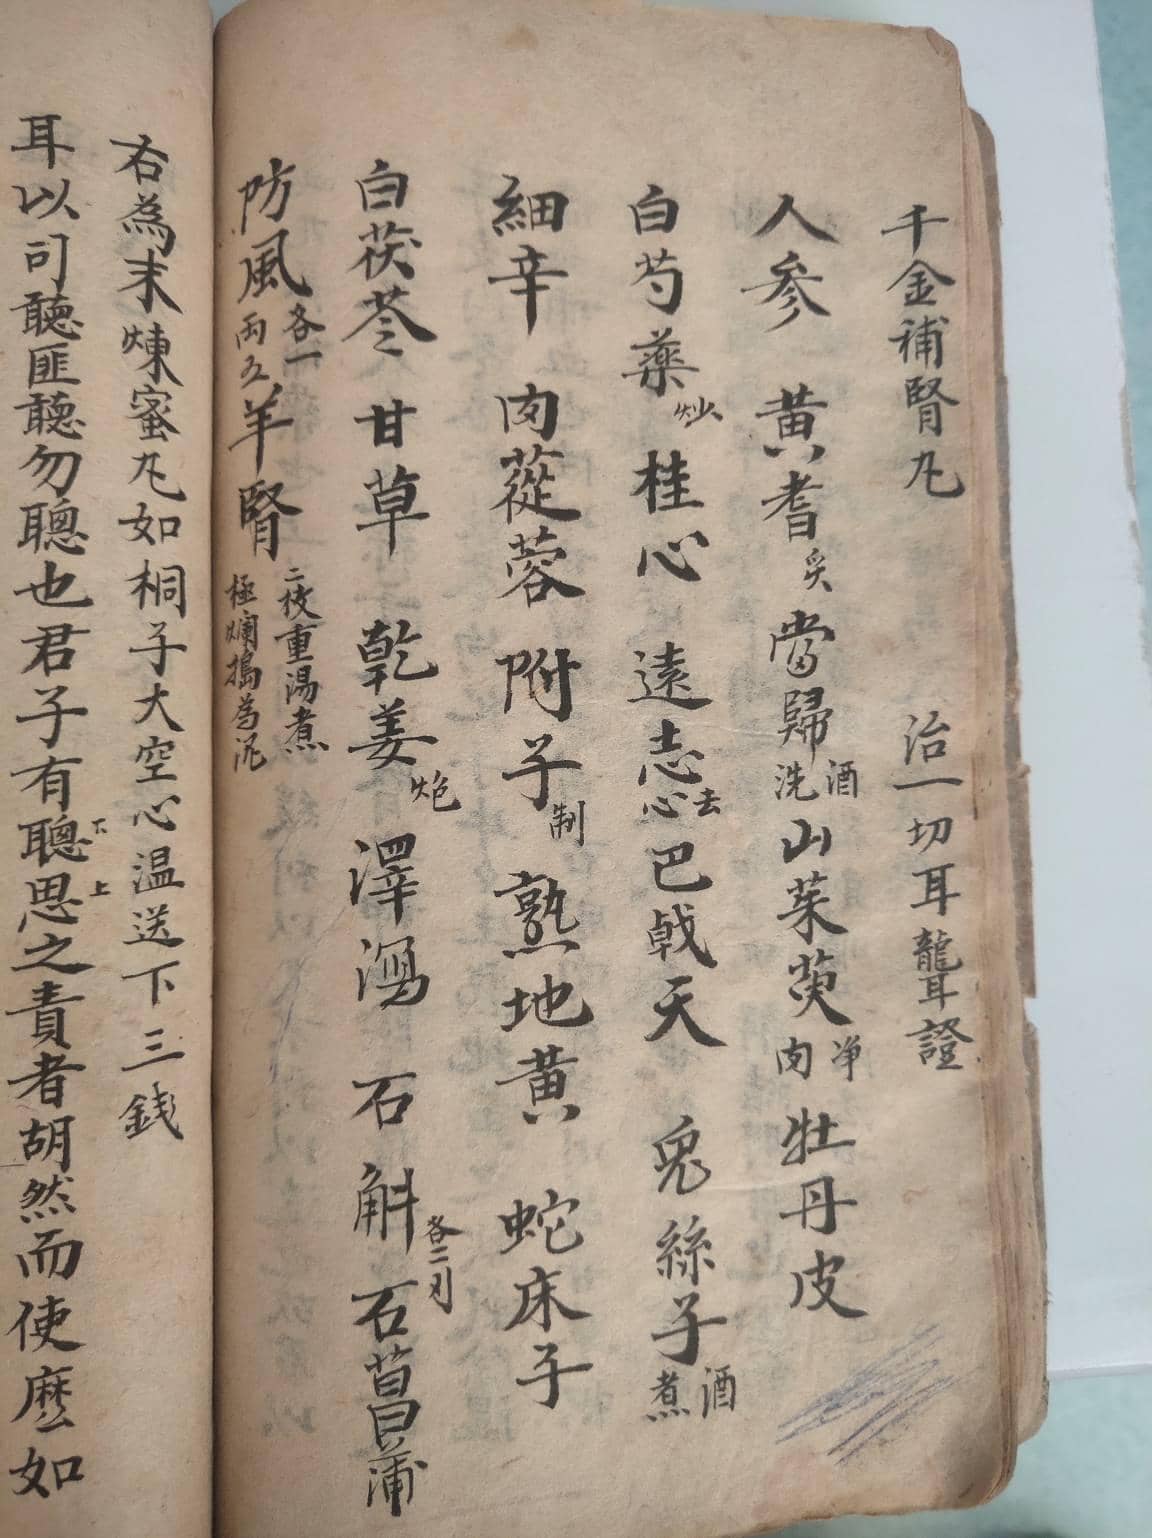 千金補腎丸 治一切耳聾證
人參 黃耆炙 當歸酒洗 山茱萸净肉 牡丹皮
白芍藥炒 桂心 遠志去心 巴戟天 兔絲子酒煮
細辛 肉蓯蓉 附子制 熟地黃 蛇床子
白茯苓 甘草 乾姜炮 澤瀉 石斛各二刄 石菖蒲
防風各一兩五 羊腎二枚重湯煮極爛搗為泥
右為末煉蜜丸如桐子大空心温送下三錢
耳以司聽匪聽勿聰也君子有聰下思上之責者胡然而使麽如